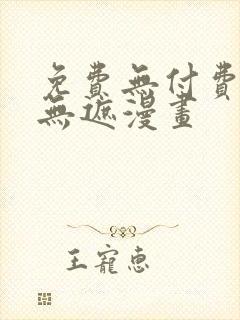 免費無付費
無遮漫畫
王寵惠